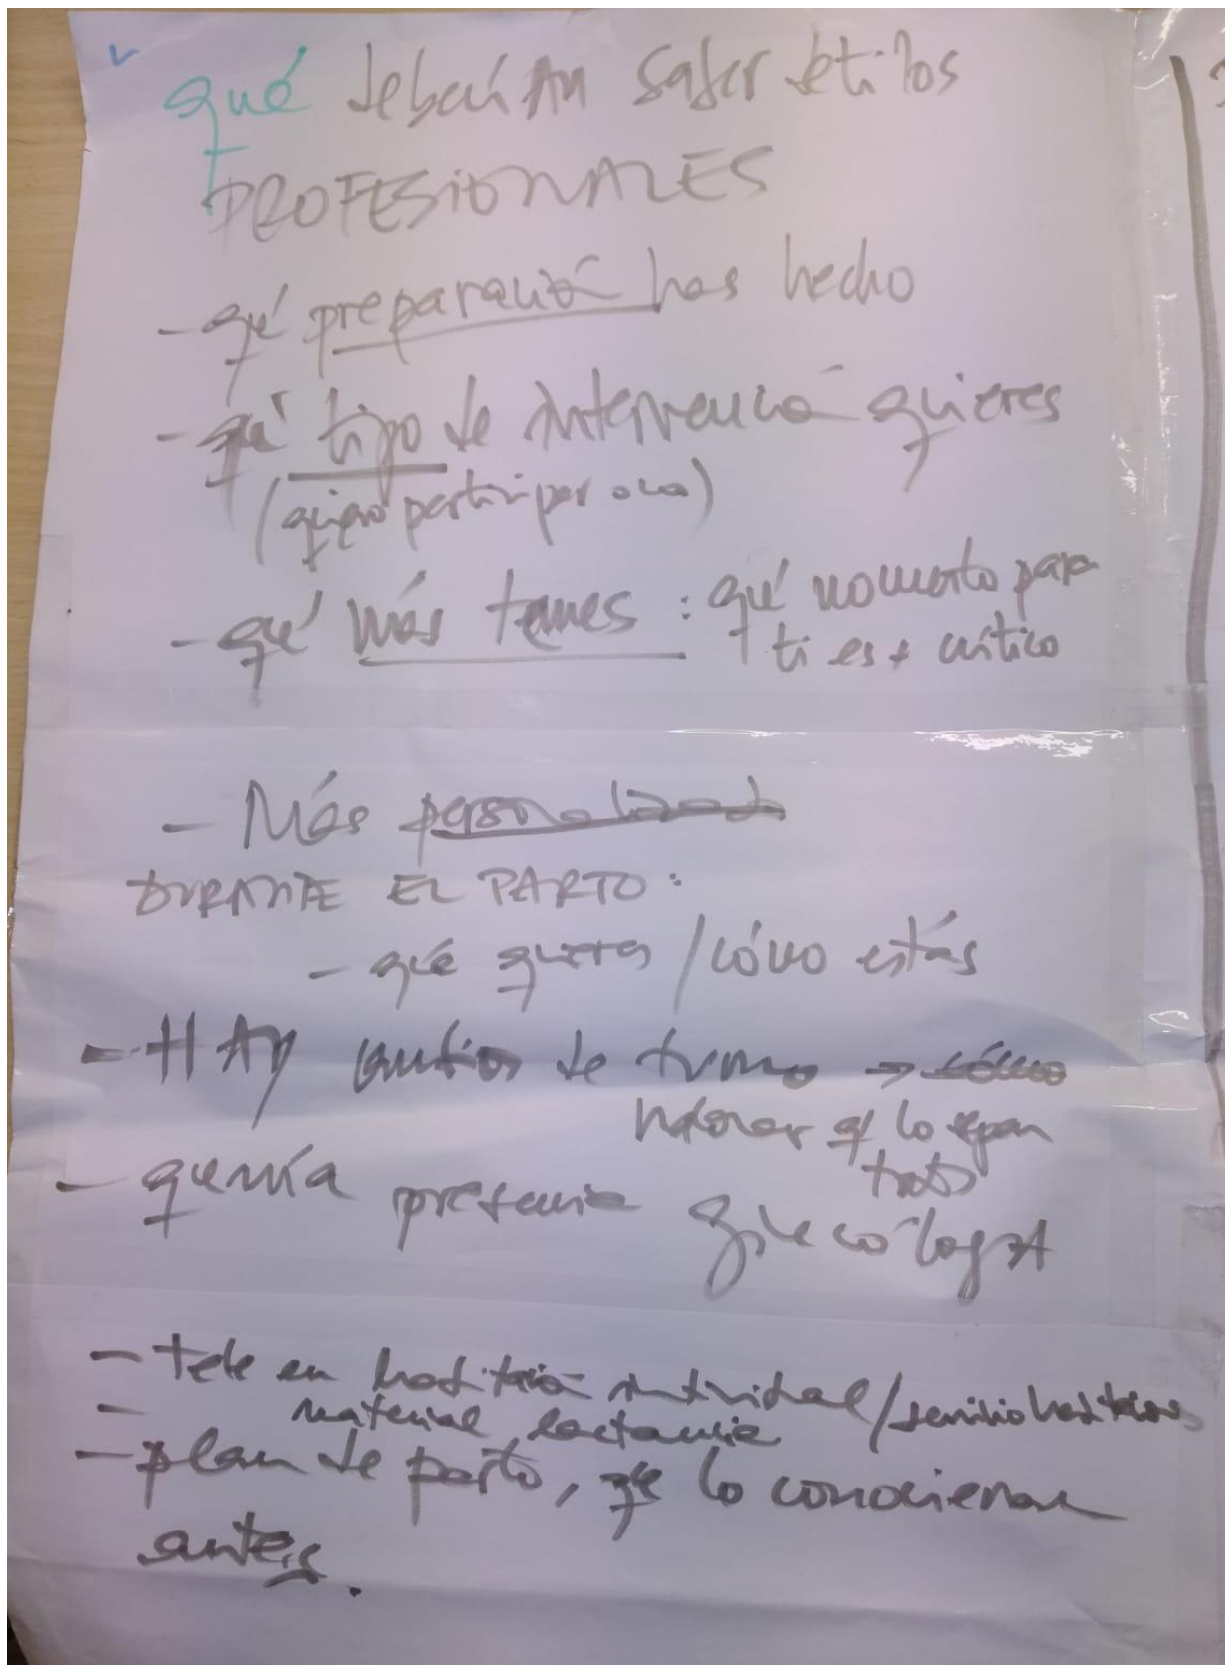 qué deberían saber de ti los
PROFESIONALES
- qué preparación has hecho
- qué tipo de intervención quieres
(quiero participar o no)
- qué más temes : qué momento para
ti es + crítico
- Más personalizado
DURANTE EL PARTO :
- qué quieres / cómo estás
- HAY cambios de turno → cómo
valorar q lo sepan
todos
- quería presencia ginecóloga
- tele en habitación individual / servicio habitaciones
- material lactancia
- plan de parto, que lo conocieran
antes.